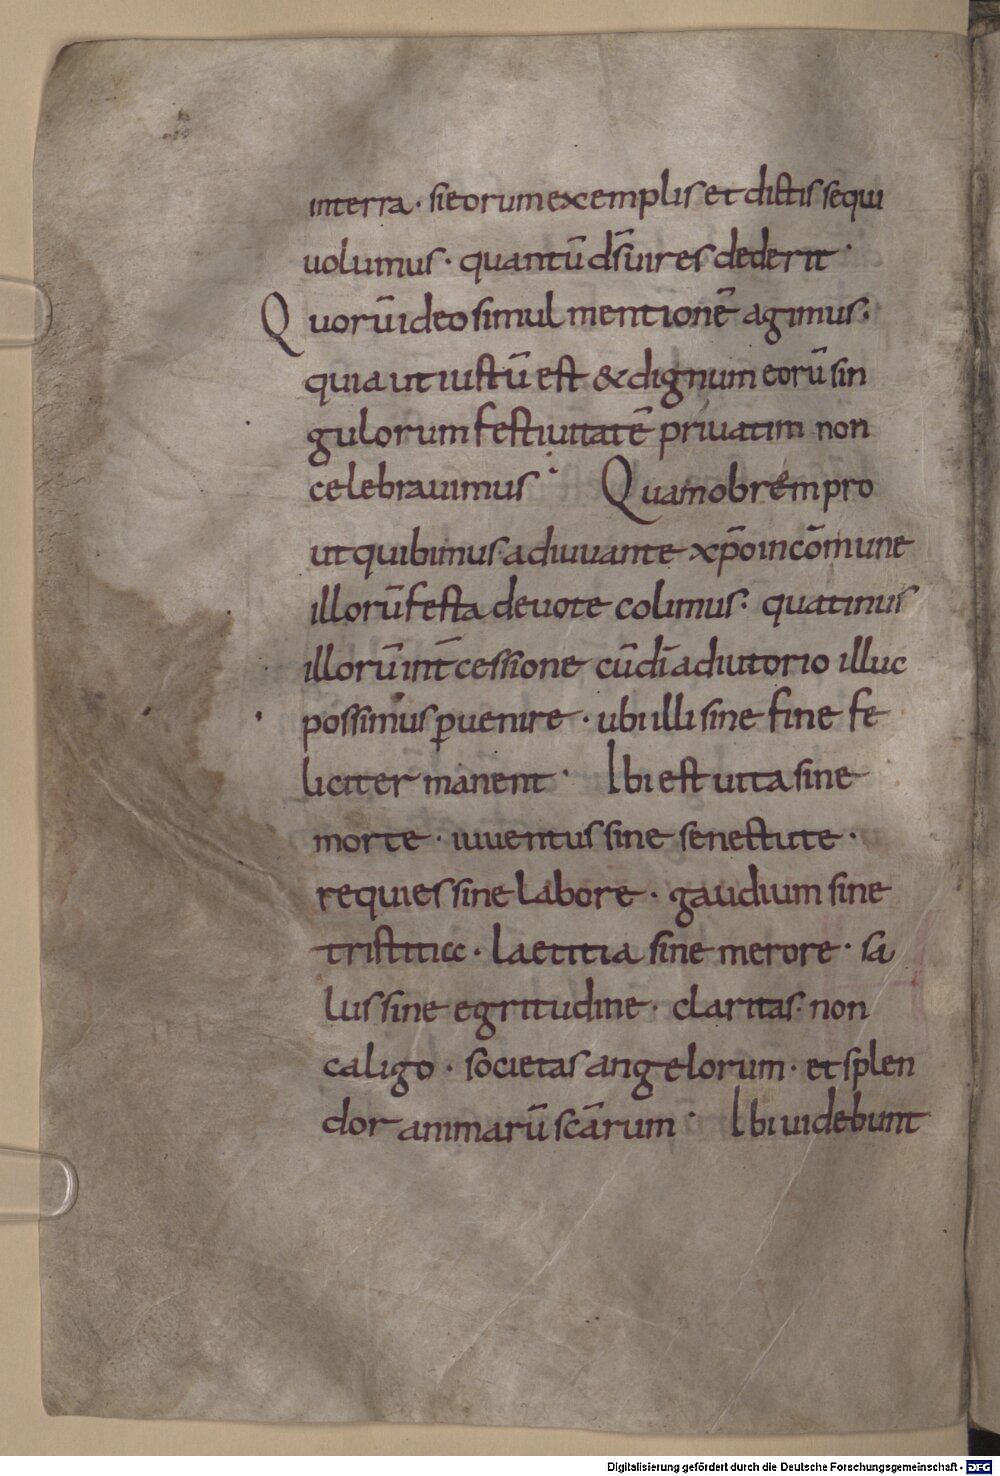 interra · si eorum exemplis et dictis sequi
uolumus · quantū d̄s uires dederit ·
Quorū ideo simul mentionē agimus ·
quia ut iustū est & dignum eorū sin
gulorum festiuitatē priuatim non
celebrauimus · Quamobrem pro
ut quibimus adiuuante xp̄o in cōmune
illorū festa deuote colimus · quatinus
illorū int̄cessione cū dī adiutorio illuc
possimus p̲uenire · ubi illi sine fine fe
liciter manent · Ibi est uita sine
morte · iuuentus sine senectute ·
requies sine labore · gaudium sine
tristitia · laetitia sine merore · sa
lus sine egritudine · claritas · non
caligo · societas angelorum · et splen
dor animarū scārum · Ibi uidebunt
Digitalisierung gefördert durch die Deutsche Forschungsgemeinschaft - DFG